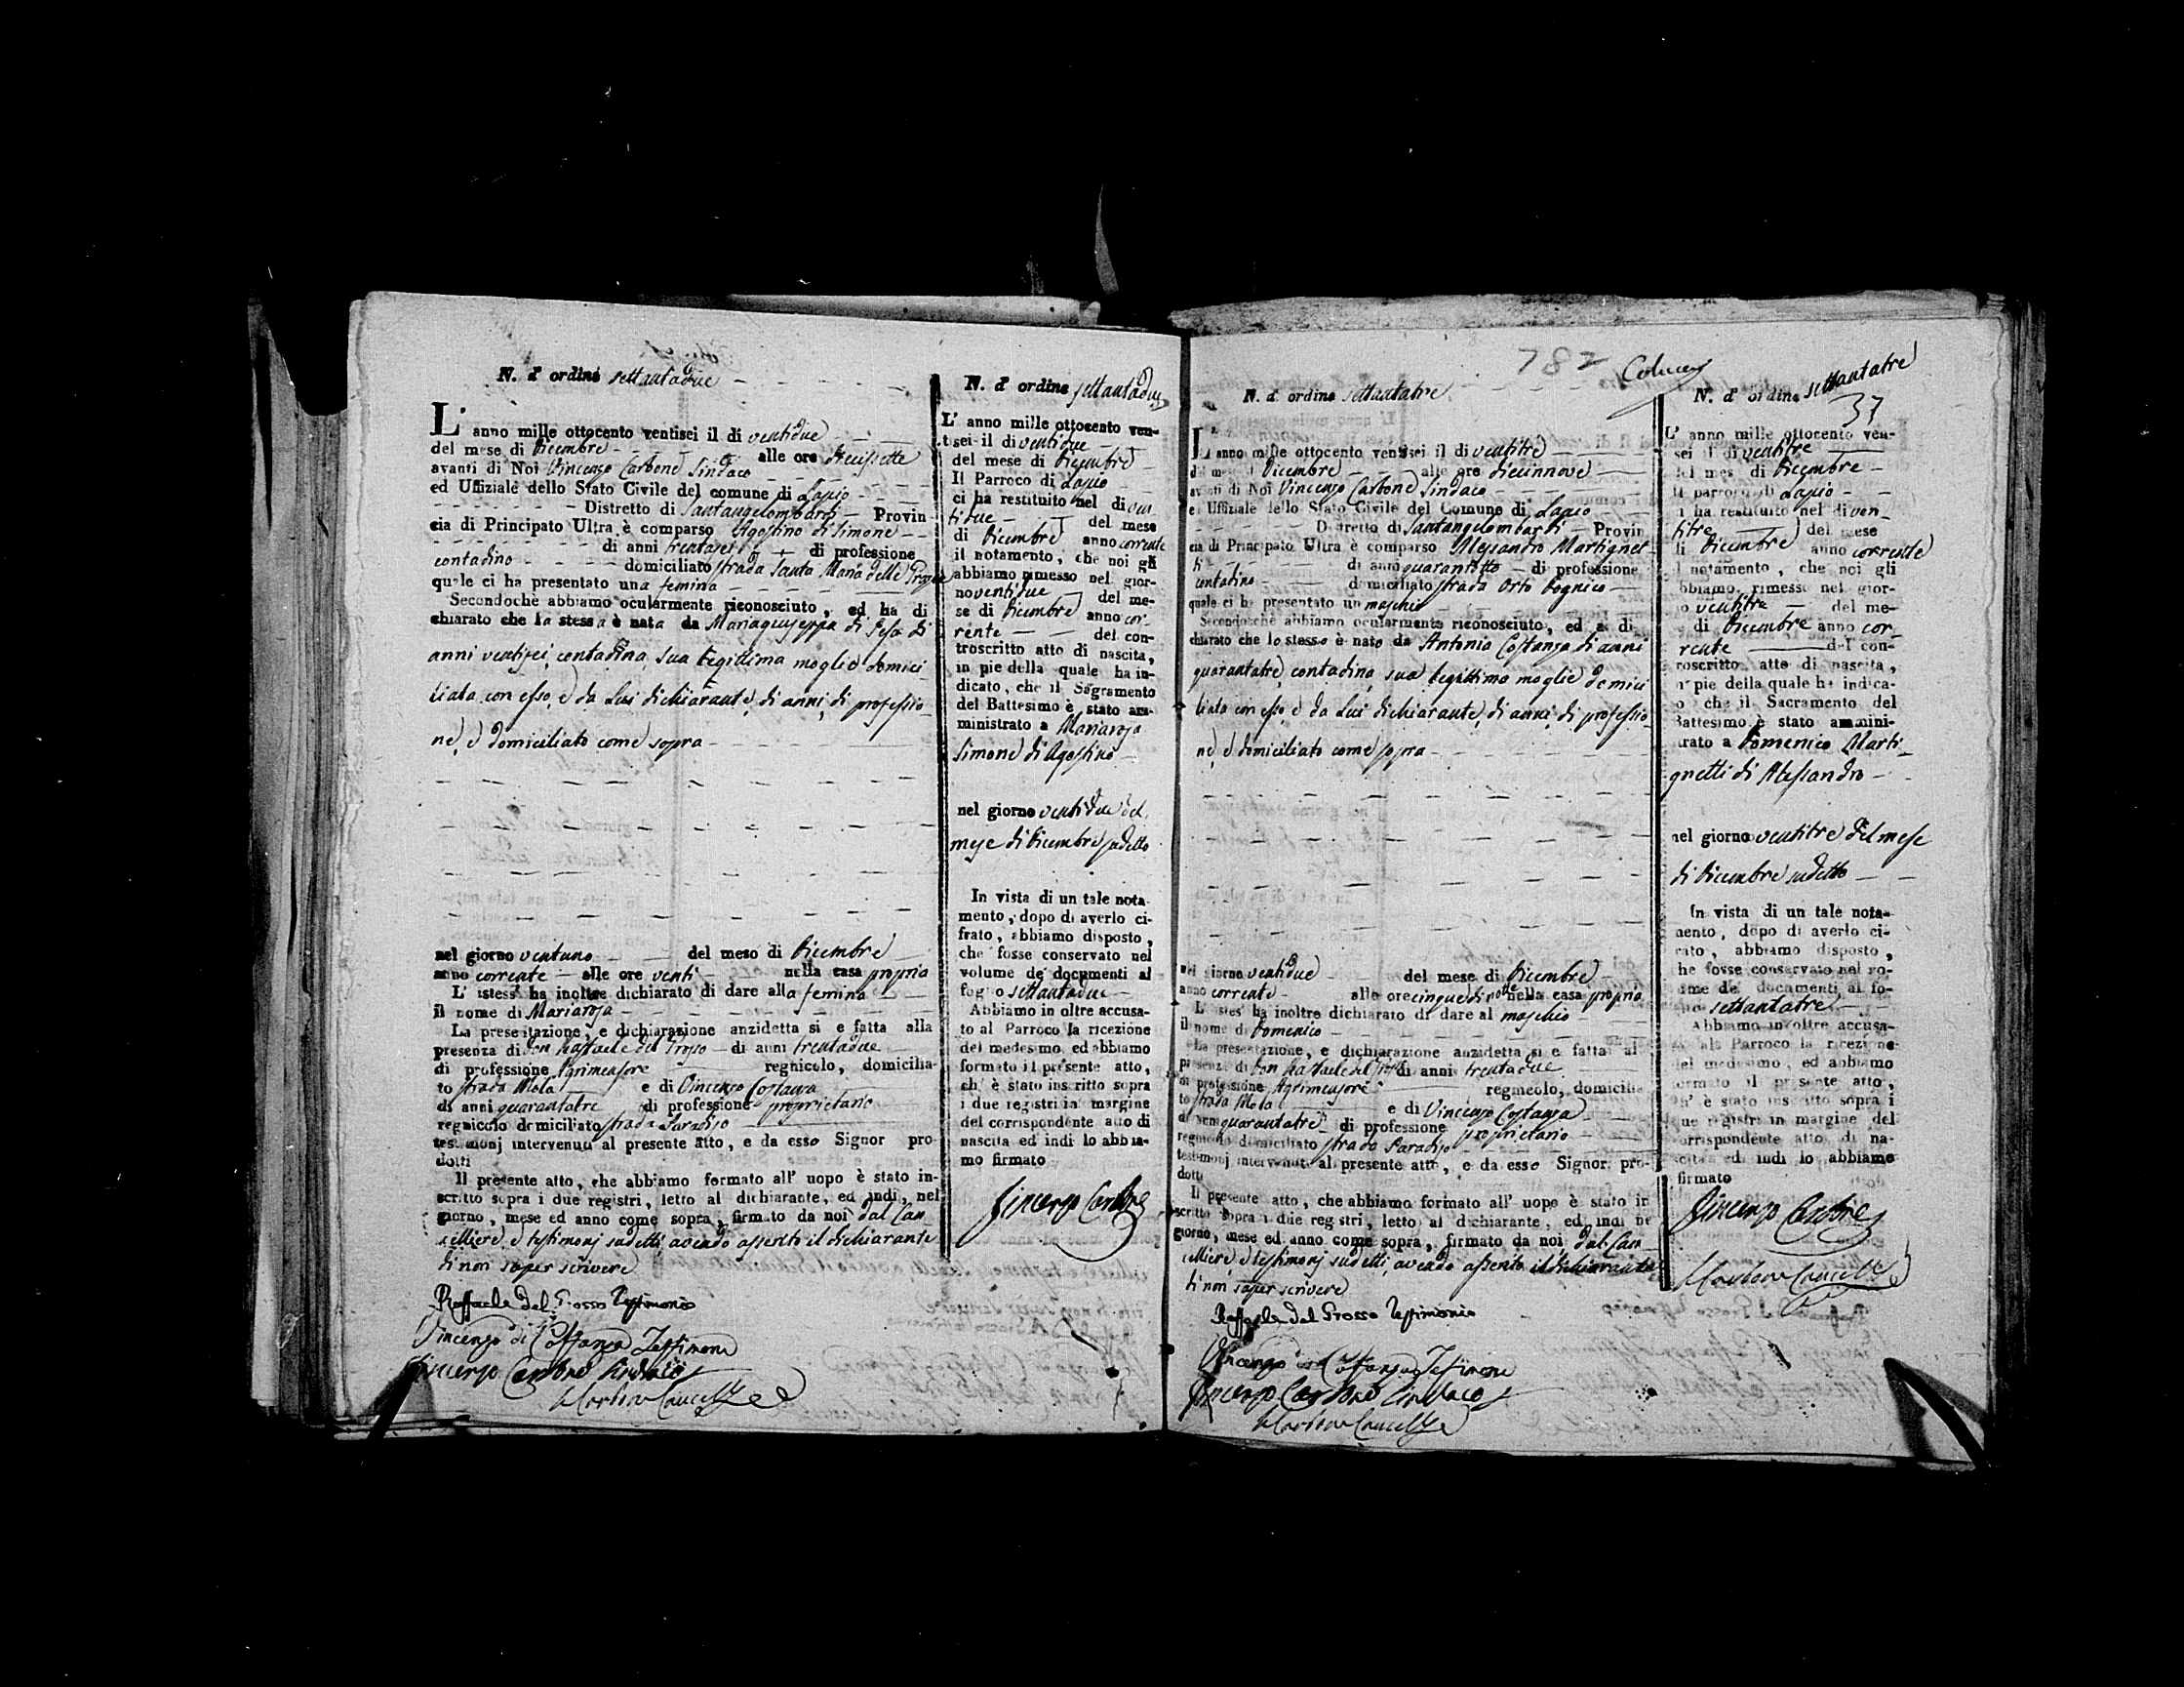 N. d' ordine settantadue
L' anno mille ottocento ventisei il di ventidue
del mese di Dicembre alle ore diecisette
avanti di Noi Vincenzo Carbone Sindaco
ed Uffiziale dello Stato Civile del comune di Lapio
Distretto di Santangelombardi Provin
cia di Principato Ultra è comparso Agostino di Simone
di anni trentasei di professione
contadino domiciliato strada Santa Maria delle
quale ci ha presentato una femina
Secondochè abbiamo ocularmente riconosciuto, ed ha di
chiarato che la stessa è nata da Mariagiuseppa di
anni ventisei contadina sua legittima moglie domici
liata con esso, e da Lui dichiarante, di anni, di professio
ne, e domiciliato come sopra
nel giorno ventuno del mese di Dicembre
anno corrente alle ore venti nella casa propria
L' istess' ha inoltre dichiarato di dare alla femina
il nome di Mariarosa
La presentazione, e dichiarazione anzidetta si è fatta alla
presenza di Don Raffaele del Grosso di anni trentadue
di professione Agrimensore regnicolo, domicilia-
to strada Mola e di Vincenzo Costanza
di anni quarantatre di professione proprietario
regnicolo domiciliato strada Paradiso
testimonj intervenuti al presente atto, e da esso Signor pro
dotti
Il presente atto, che abbiamo formato all' uopo è stato in-
scritto sopra i due registri, letto al dichiarante, ed indi, nel
giorno, mese ed anno come sopra, firmato da noi dal Can
celliere, e testimonj sudetti, avendo asserito il dichiarante
di non saper scrivere
Raffaele del Grosso Testimonio
Vincenzo di Costanza Testimone
Vincenzo Carbone Sindaco
N. d' ordine settantadue
L' anno mille ottocento ven-
tisei il di ventidue
del mese di Dicembre
Il Parroco di Lapio
ci ha restituito nel di ven
tidue del mese
di Dicembre anno corrente
il notamento, che noi gli
abbiamo rimesso nel gior-
no ventidue del me-
se di Dicembre anno cor-
rente del con-
troscritto atto di nascita,
in pie della quale ha in-
dicato, che il Sagramento
del Battesimo è stato am-
ministrato a Mariarosa
Simone di Agostino
nel giorno ventidue del
mese di Dicembre sudetto
In vista di un tale nota
mento, dopo di averlo ci-
frato, abbiamo disposto,
che fosse conservato nel
volume de' documenti al
foglio settantadue
Abbiamo in oltre accusa-
to al Parroco la ricezione
del medesimo, ed abbiamo
formato il presente atto,
ch' è stato inscritto sopra
i due registri in margine
del corrispondente atto di
nascita ed indi lo abbia-
mo firmato
Vincenzo Carbone
782
N. d' ordine settantatre
L' anno mille ottocento ventisei il di ventitre
del mese di Dicembre alle ore diecinnove
avanti di Noi Vincenzo Carbone Sindaco
ed Uffiziale dello Stato Civile del Comune di Lapio
Distretto di Santangelombardi Provin
cia di Principato Ultra è comparso Alessandro Martignet
ti di anni quarantotto di professione
contadino domiciliato strada Orto
quale ci ha presentato un maschio
Secondochè abbiamo ocularmente riconosciuto, ed a di
chiarato che lo stesso è nato da Antonia Costanza di anni
quarantatre, contadina sua legittima moglie domici
liata con esso, e da Lui dichiarante, di anni, di professio
ne, e domiciliato come sopra
nel giorno ventidue del mese di Dicembre
anno corrente alle ore cinque di notte nella casa propria
L' istes' ha inoltre dichiarato di dare al maschio
il nome di Domenico
La presentazione, e dichiarazione anzidetta si è fatta al
presenza di Don Raffaele del Grosso di anni trentadue
di professione Agrimensore regnicolo, domicilia
to strada Mola e di Vincenzo Costanza
di anni quarantatre di professione proprietario
regnicolo domiciliato strada Paradiso
testimonj intervenuti al presente atto, e da esso Signor pro-
dotti
Il presente atto, che abbiamo formato all' uopo è stato in
scritto sopra i due registri, letto al dichiarante, ed indi ne
giorno, mese ed anno come sopra, firmato da noi, dal Can
celliere, e testimonj sudetti, avendo asserito il dichiarante
di non saper scrivere
Raffaele del Grosso Testimonio
Vincenzo Costanza Testimone
Vincenzo Carbone Sindaco
N. d' ordine settantatre
37
L' anno mille ottocento ven-
sei il di ventitre
del mese di Dicembre
Il parroco di Lapio
i ha restituito nel di ven-
titre del mese
di Dicembre anno corrente
il notamento, che noi gli
abbiamo rimesso nel gior-
no ventitre del me-
di Dicembre anno cor-
rente del con-
troscritto atto di nascita,
in pie della quale ha indica-
o che il Sacramento del
Battesimo è stato ammini-
trato a Domenico Marti-
gnetti di Alessandro
nel giorno ventitre del mese
di Dicembre sudetto
In vista di un tale nota-
mento, dopo di averlo ci-
frato, abbiamo disposto,
che fosse conservato nel vo-
lume de' documenti al fo-
glio settantatre
Abbiamo in oltre accusa-
to al Parroco la ricezione
del medesimo, ed abbiamo
formato il presente atto,
ch' è stato inscritto sopra i
due registri in margine del
corrispondente atto di na-
scita ed indi lo abbiamo
firmato
Vincenzo Carbone